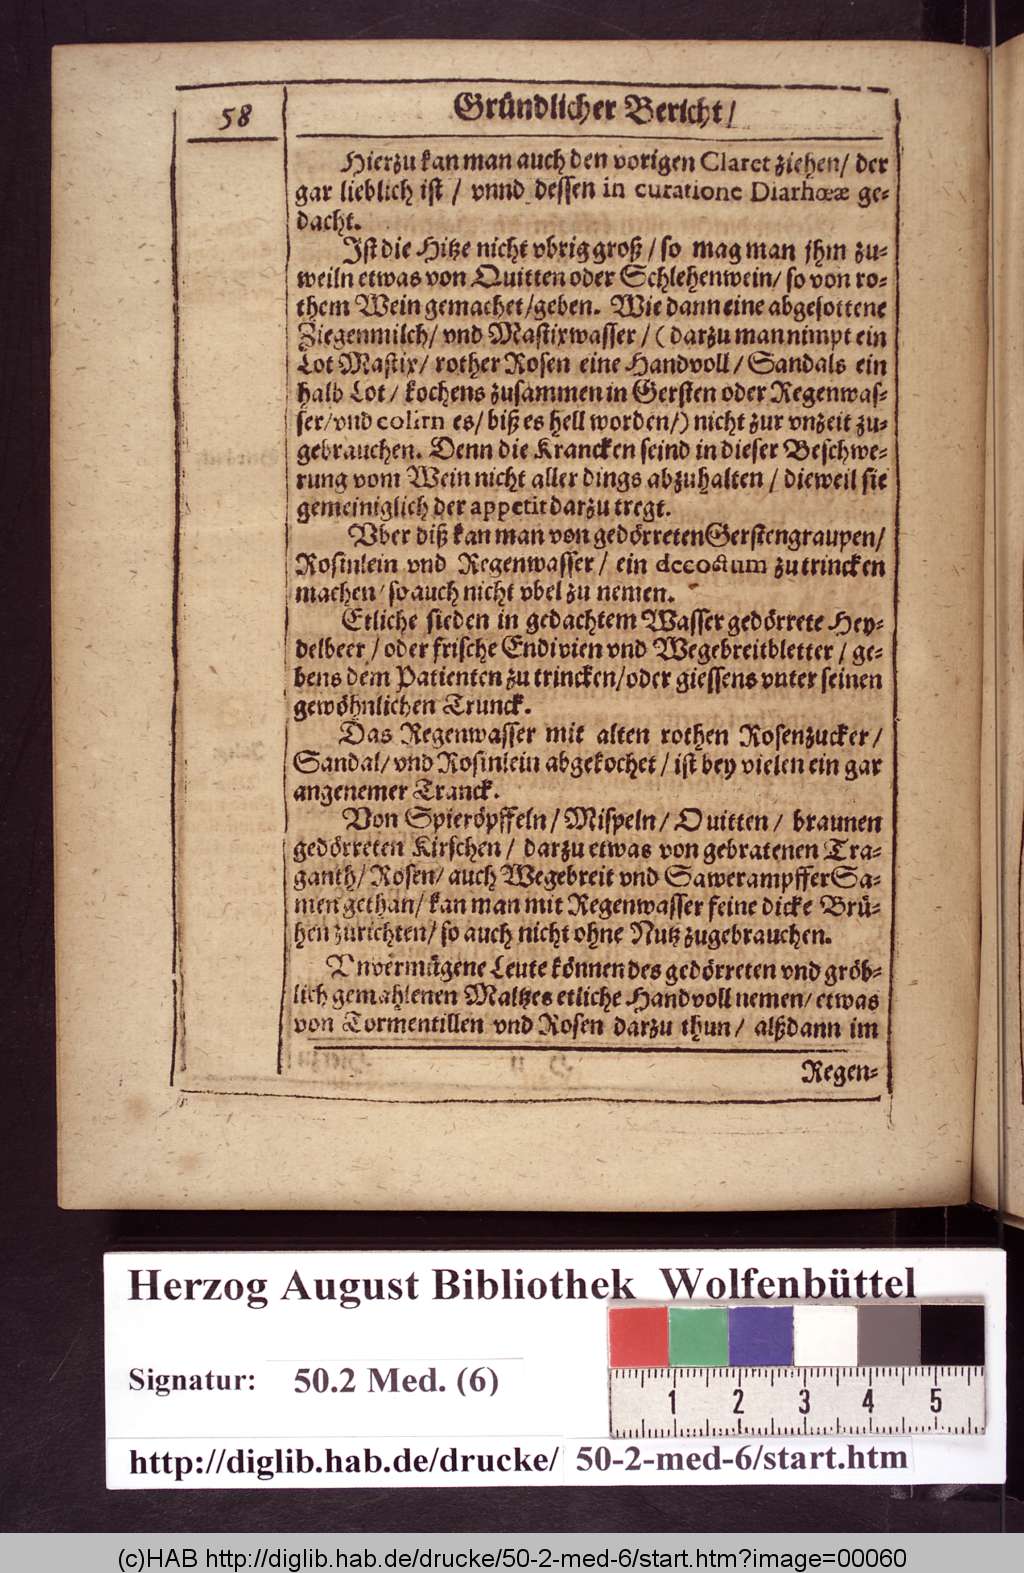 58
Gründlicher Bericht/
Hierzu kan man auch den vorigen Claret ziehen/ der
gar lieblich ist / vnnd dessen in curatione Diarhœæ ge-
dacht.
Ist die Hitze nicht vbrig groß / so mag man jhm zu-
weiln etwas von Quitten oder Schlehenwein/ so von ro-
them Wein gemachet/geben. Wie dann eine abgesottene
Ziegenmilch/ vnd Mastixwasser / ( darzu man nimpt ein
Lot Mastix/ rother Rosen eine Handvoll / Sandals ein
halb Lot / kochens zusammen in Gersten oder Regenwas-
ser/vnd colirn es/ biß es hell worden/) nicht zur vnzeit zu-
gebrauchen. Denn die Krancken seind in dieser Beschwe-
rung vom Wein nicht aller dings abzuhalten / dieweil sie
gemeiniglich der appetit darzu tregt.
Vber diß kan man von gedörreten Gerstengraupen/
Rosinlein vnd Regenwasser / ein decoctum zu trincken
machen/ so auch nicht vbel zu nemen.
Etliche sieden in gedachtem Wasser gedörrete Hey-
delbeer / oder frische Endivien vnd Wegebreitbletter / ge-
bens dem Patienten zu trincken/oder giessens vnter seinen
gewöhnlichen Trunck.
Das Regenwasser mit alten rothen Rosenzucker/
Sandal/ vnd Rosinlein abgekochet / ist bey vielen ein gar
angenemer Tranck.
Von Spieröpffeln/ Mispeln/ Quitten / braunen
gedörreten Kirschen / darzu etwas von gebratenen Tra-
ganth/ Rosen/ auch Wegebreit vnd Sawerampffer Sa-
men gethan/ kan man mit Regenwasser feine dicke Brü-
hen zurichten/ so auch nicht ohne Nutz zugebrauchen.
Vnvermügene Leute können des gedörreten vnd gröb-
lich gemahlenen Maltzes etliche Handvoll nemen/ etwas
von Tormentillen vnd Rosen darzu thun/ alßdann im
Regen-
Herzog August Bibliothek Wolfenbüttel
Signatur: 50.2 Med. (6)
1 2 3 4 5
http://diglib.hab.de/drucke/ 50-2-med-6/start.htm
(c)HAB http://diglib.hab.de/drucke/50-2-med-6/start.htm?image=00060